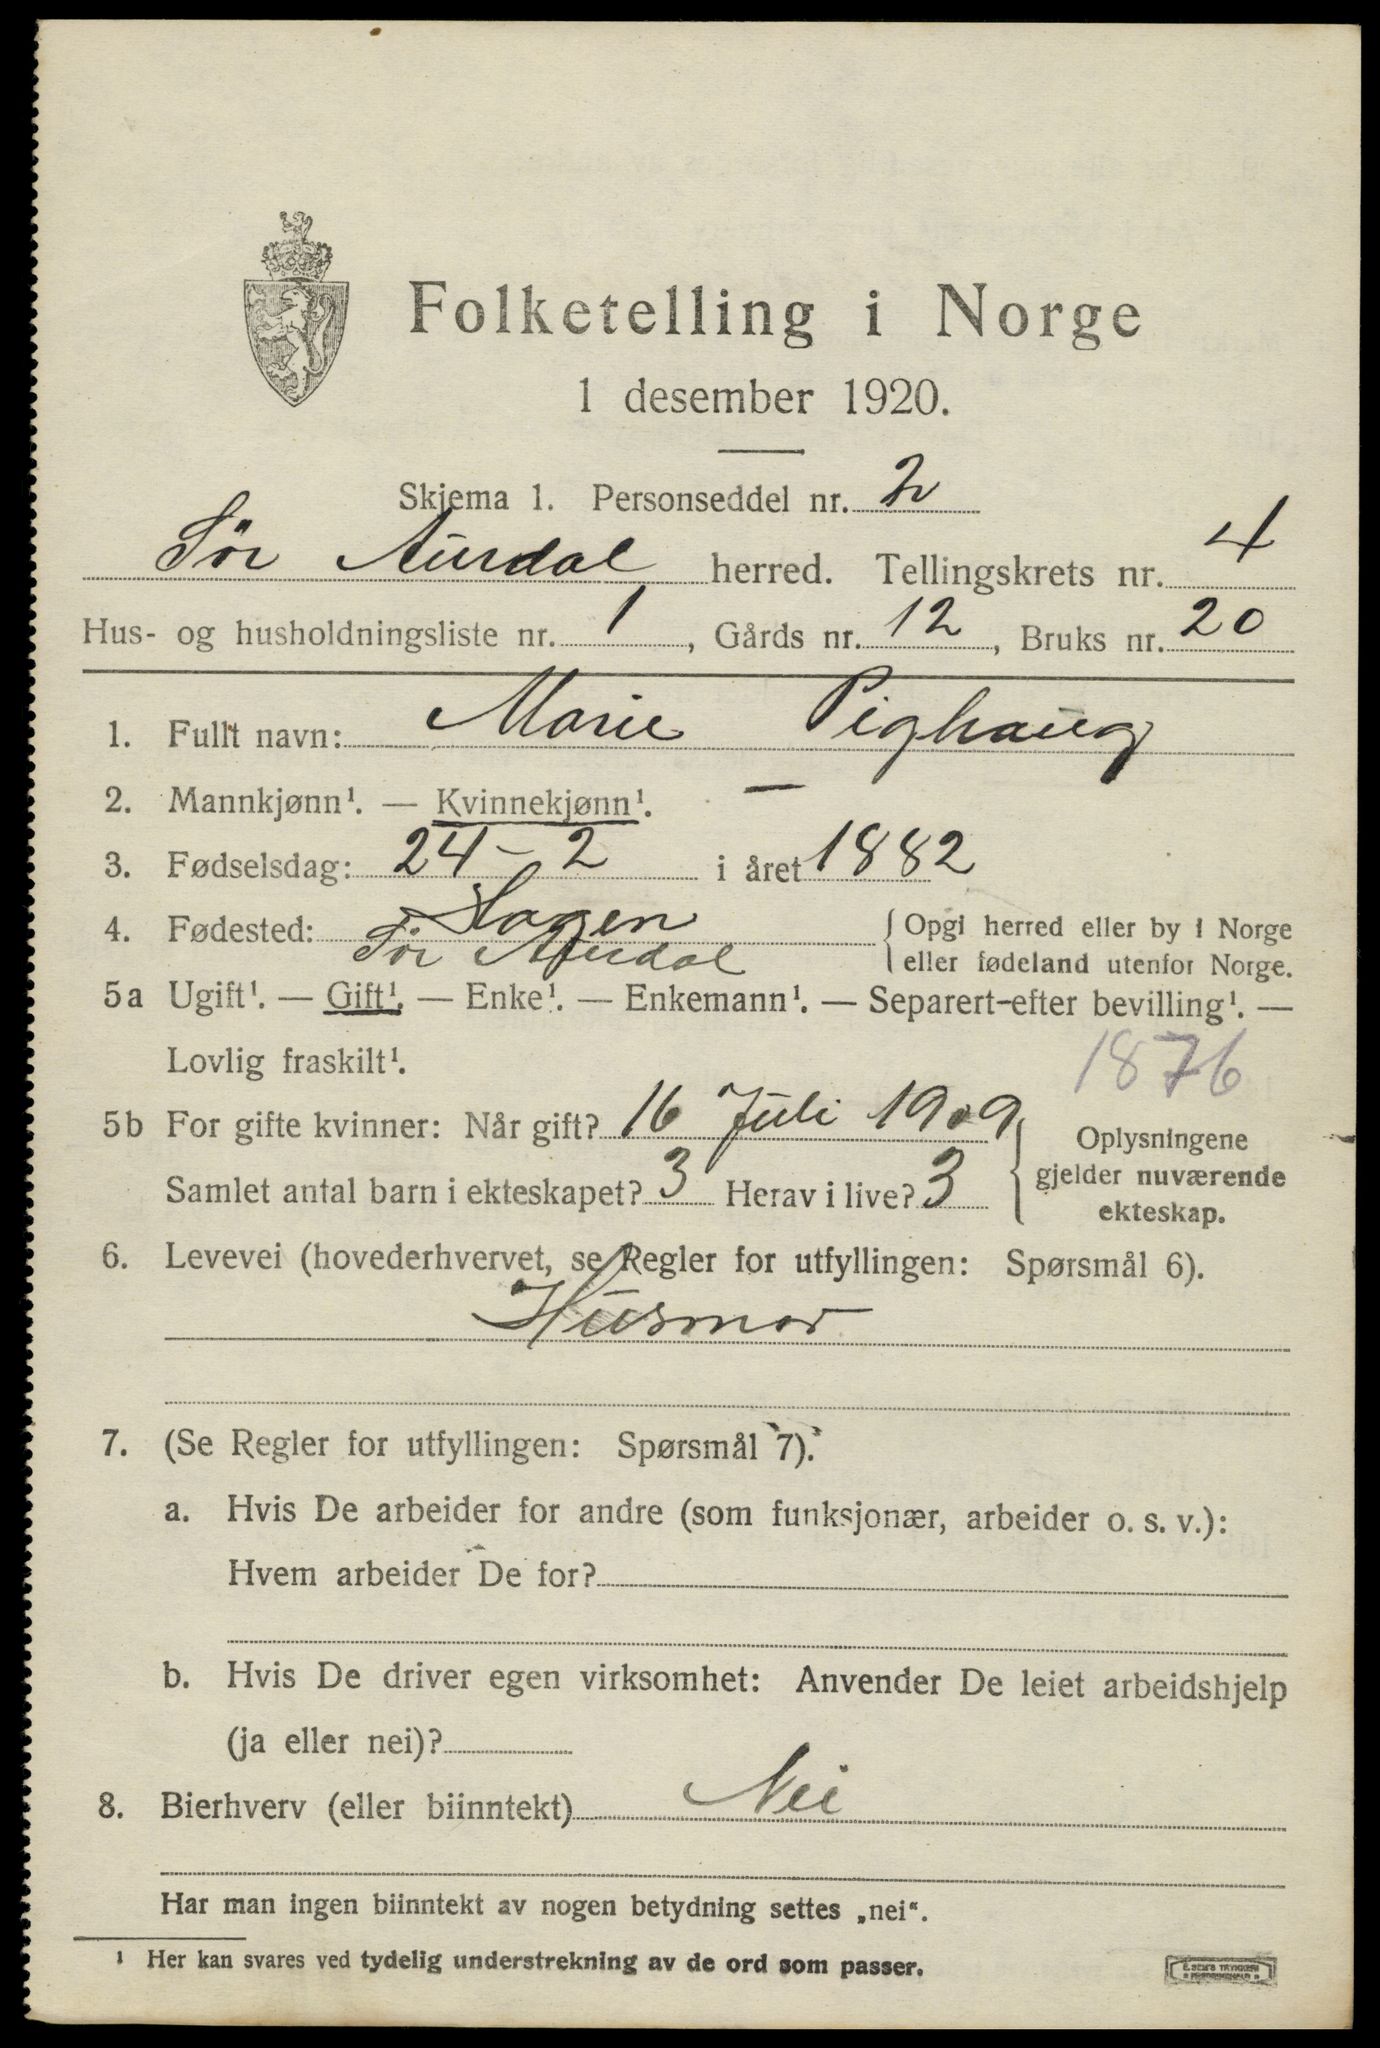 Folketelling i Norge
1 desember 1920.
Skjema 1. Personseddel nr. 2
Sör Aurdal herred. Tellingskrets nr. 4
Hus- og husholdningsliste nr. 1, Gårds nr. 12, Bruks nr. 20
1. Fullt navn: Marie Pighaug
2. Mannkjønn¹. — Kvinnekjønn¹. —
3. Fødselsdag: 24 - 2 i året 1882
4. Fødested: Sagen { Opgi herred eller by i Norge
Sör Aurdal eller fødeland utenfor Norge.
5a Ugift¹. — Gift¹. — Enke¹. — Enkemann¹. — Separert-efter bevilling¹. —
Lovlig fraskilt¹. 1876
5b For gifte kvinner: Når gift? 16 Juli 1909 { Oplysningene
Samlet antal barn i ekteskapet? 3 Herav i live? 3 gjelder nuværende
ekteskap.
6. Levevei (hovederhvervet, se Regler for utfyllingen: Spørsmål 6).
Husmor
7. (Se Regler for utfyllingen: Spørsmål 7).
a. Hvis De arbeider for andre (som funksjonær, arbeider o. s. v.):
Hvem arbeider De for?
b. Hvis De driver egen virksomhet: Anvender De leiet arbeidshjelp
(ja eller nei)?
8. Bierhverv (eller biinntekt) Nei
Har man ingen biinntekt av nogen betydning settes „nei“.
¹ Her kan svares ved tydelig understrekning av de ord som passer.